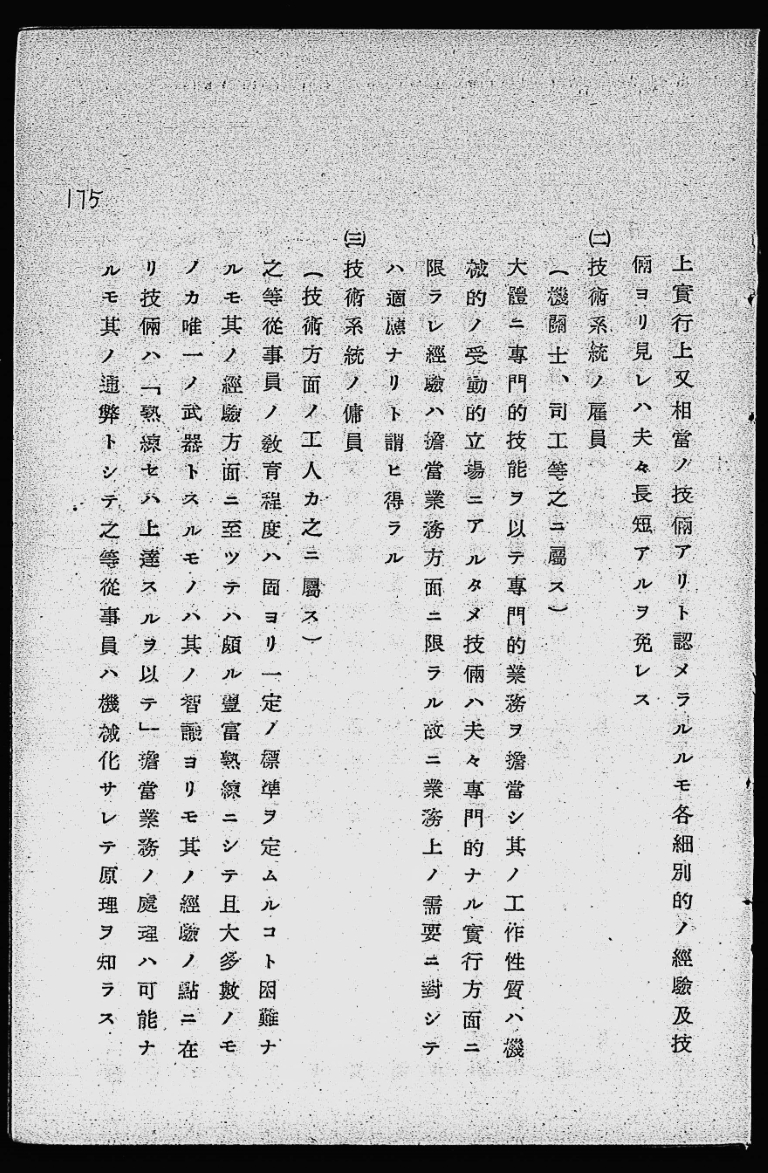 上實行上又相當ノ技倆アリト認メラルルモ各細別的ノ經驗及技
倆ヨリ見レハ夫々長短アルヲ免レス
㈡技術系統ノ雇員
(機關士、司工等之ニ屬ス)
大體ニ專門的技能ヲ以テ專門的業務ヲ擔當シ其ノ工作性質ハ機
械的ノ受動的立場ニアルタメ技倆ハ夫々專門的ナル實行方面ニ
限ラレ經驗ハ擔當業務方面ニ限ラル故ニ業務上ノ需要ニ對シテ
ハ適應ナリト謂ヒ得ラル
㈢技術系統ノ傭員
(技術方面ノ工人カ之ニ屬ス)
之等從事員ノ教育程度ハ固ヨリ一定ノ標準ヲ定ムルコト困難ナ
ルモ其ノ經驗方面ニ至ツテハ頗ル豐富熟練ニシテ且大多數ノモ
ノカ唯一ノ武器トスルモノハ其ノ智識ヨリモ其ノ經驗ノ點ニ在
リ技倆ハ「熟練セハ上達スルヲ以テ」擔當業務ノ處理ハ可能ナ
ルモ其ノ通弊トシテ之等從事員ハ機械化サレテ原理ヲ知ラス
175